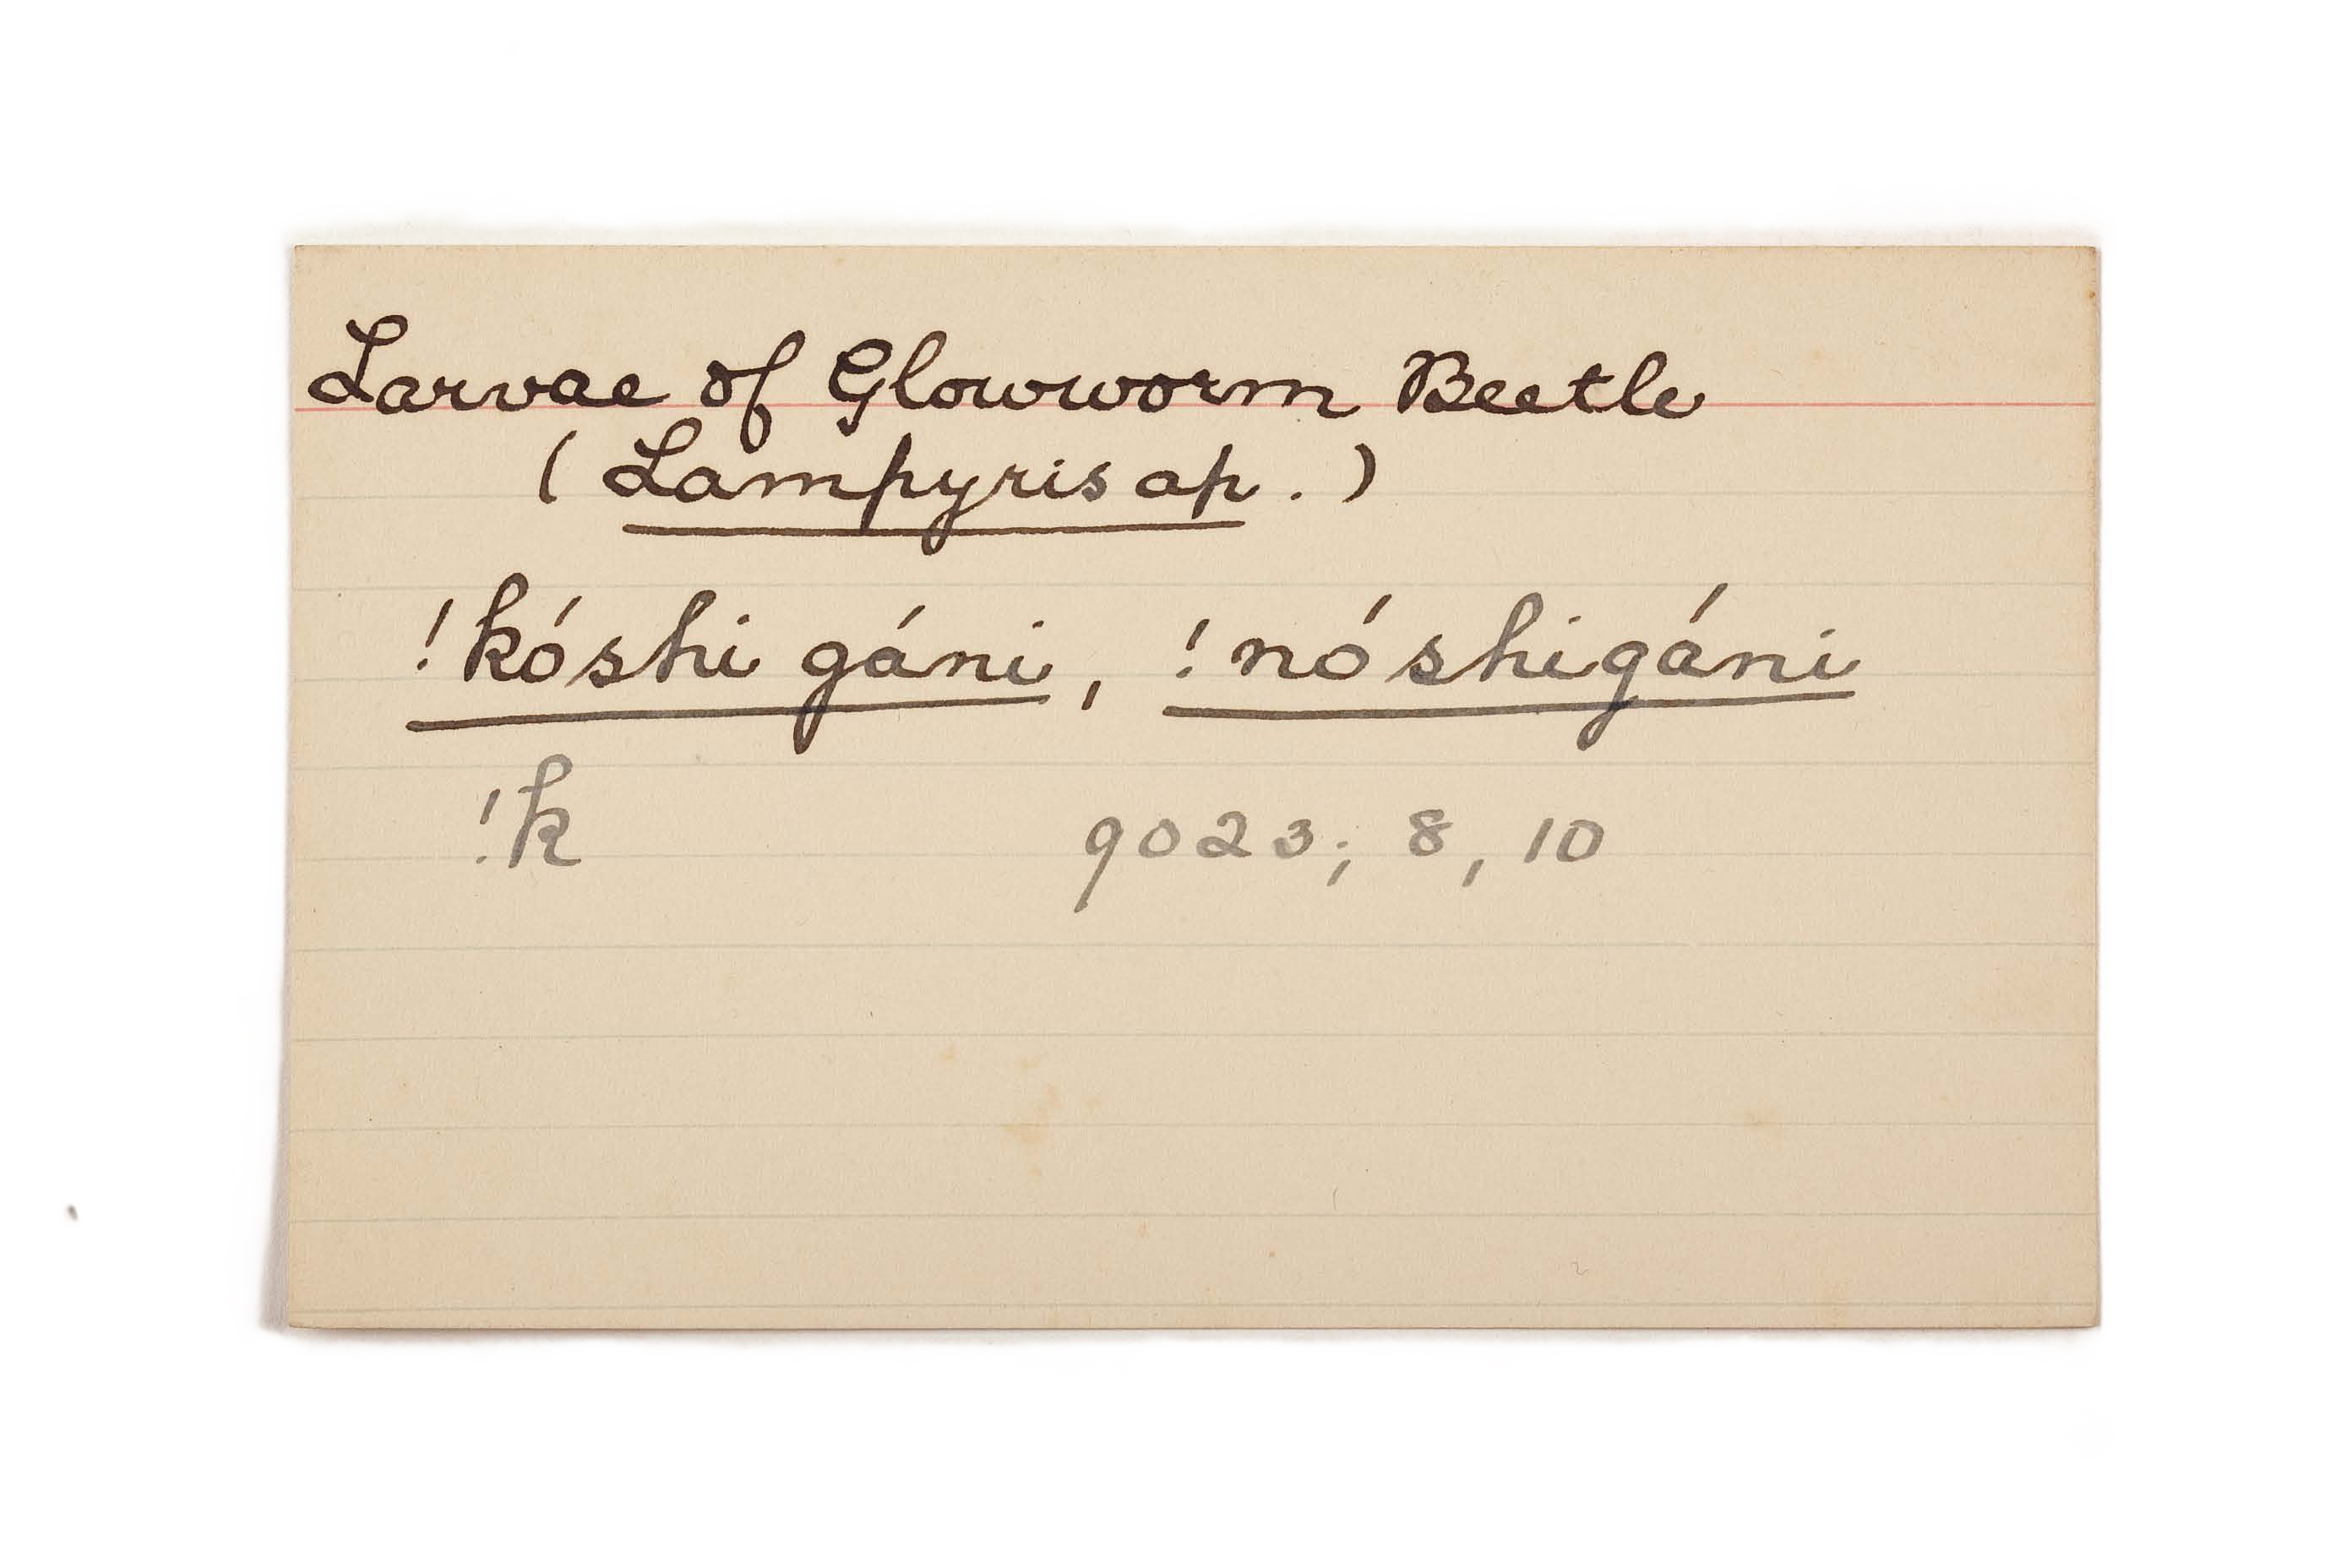 Larvae of Glowworm Beetle
(Lampyris sp.)
!kóshi gáni, !nóshigáni
!k 9023; 8, 10